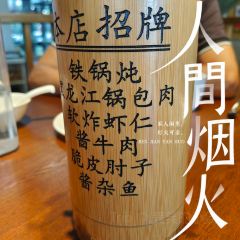 本店招牌
铁锅炖
龙江锅包肉
软炸虾仁
酱牛肉
脆皮肘子
酱杂鱼
人間烟火
家人闲坐，
灯火可亲。
REN JIAN YAN HUO